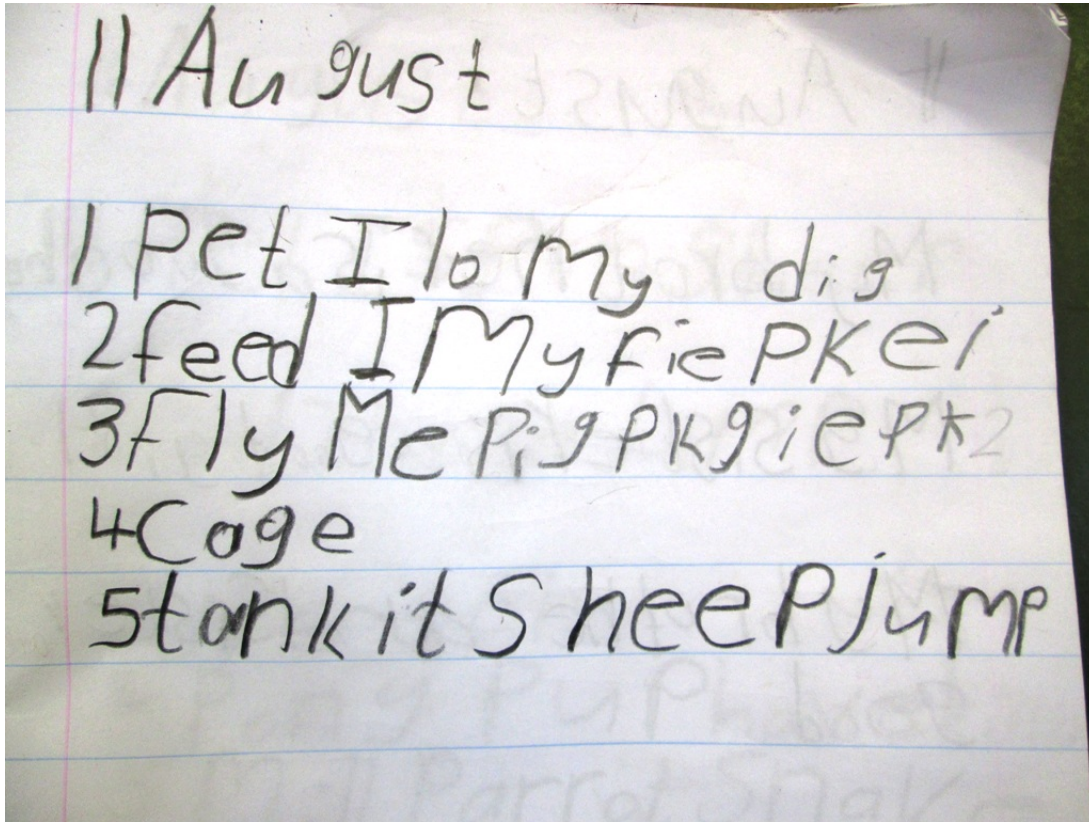 11 August
1 Pet I lo My dig
2 feed I My fie PKei
3 Fly Me Pig PKgiePk2
4 Cage
5 tank it Sheep jump